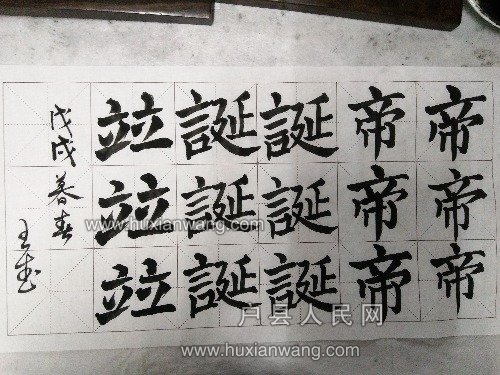 帝帝帝
帝帝帝
誕誕誕
誕誕誕
竝竝竝
戊戌暮春
王
www.huxianwang.com
www.huxianwang.com
户县人民网
www.huxianwang.com